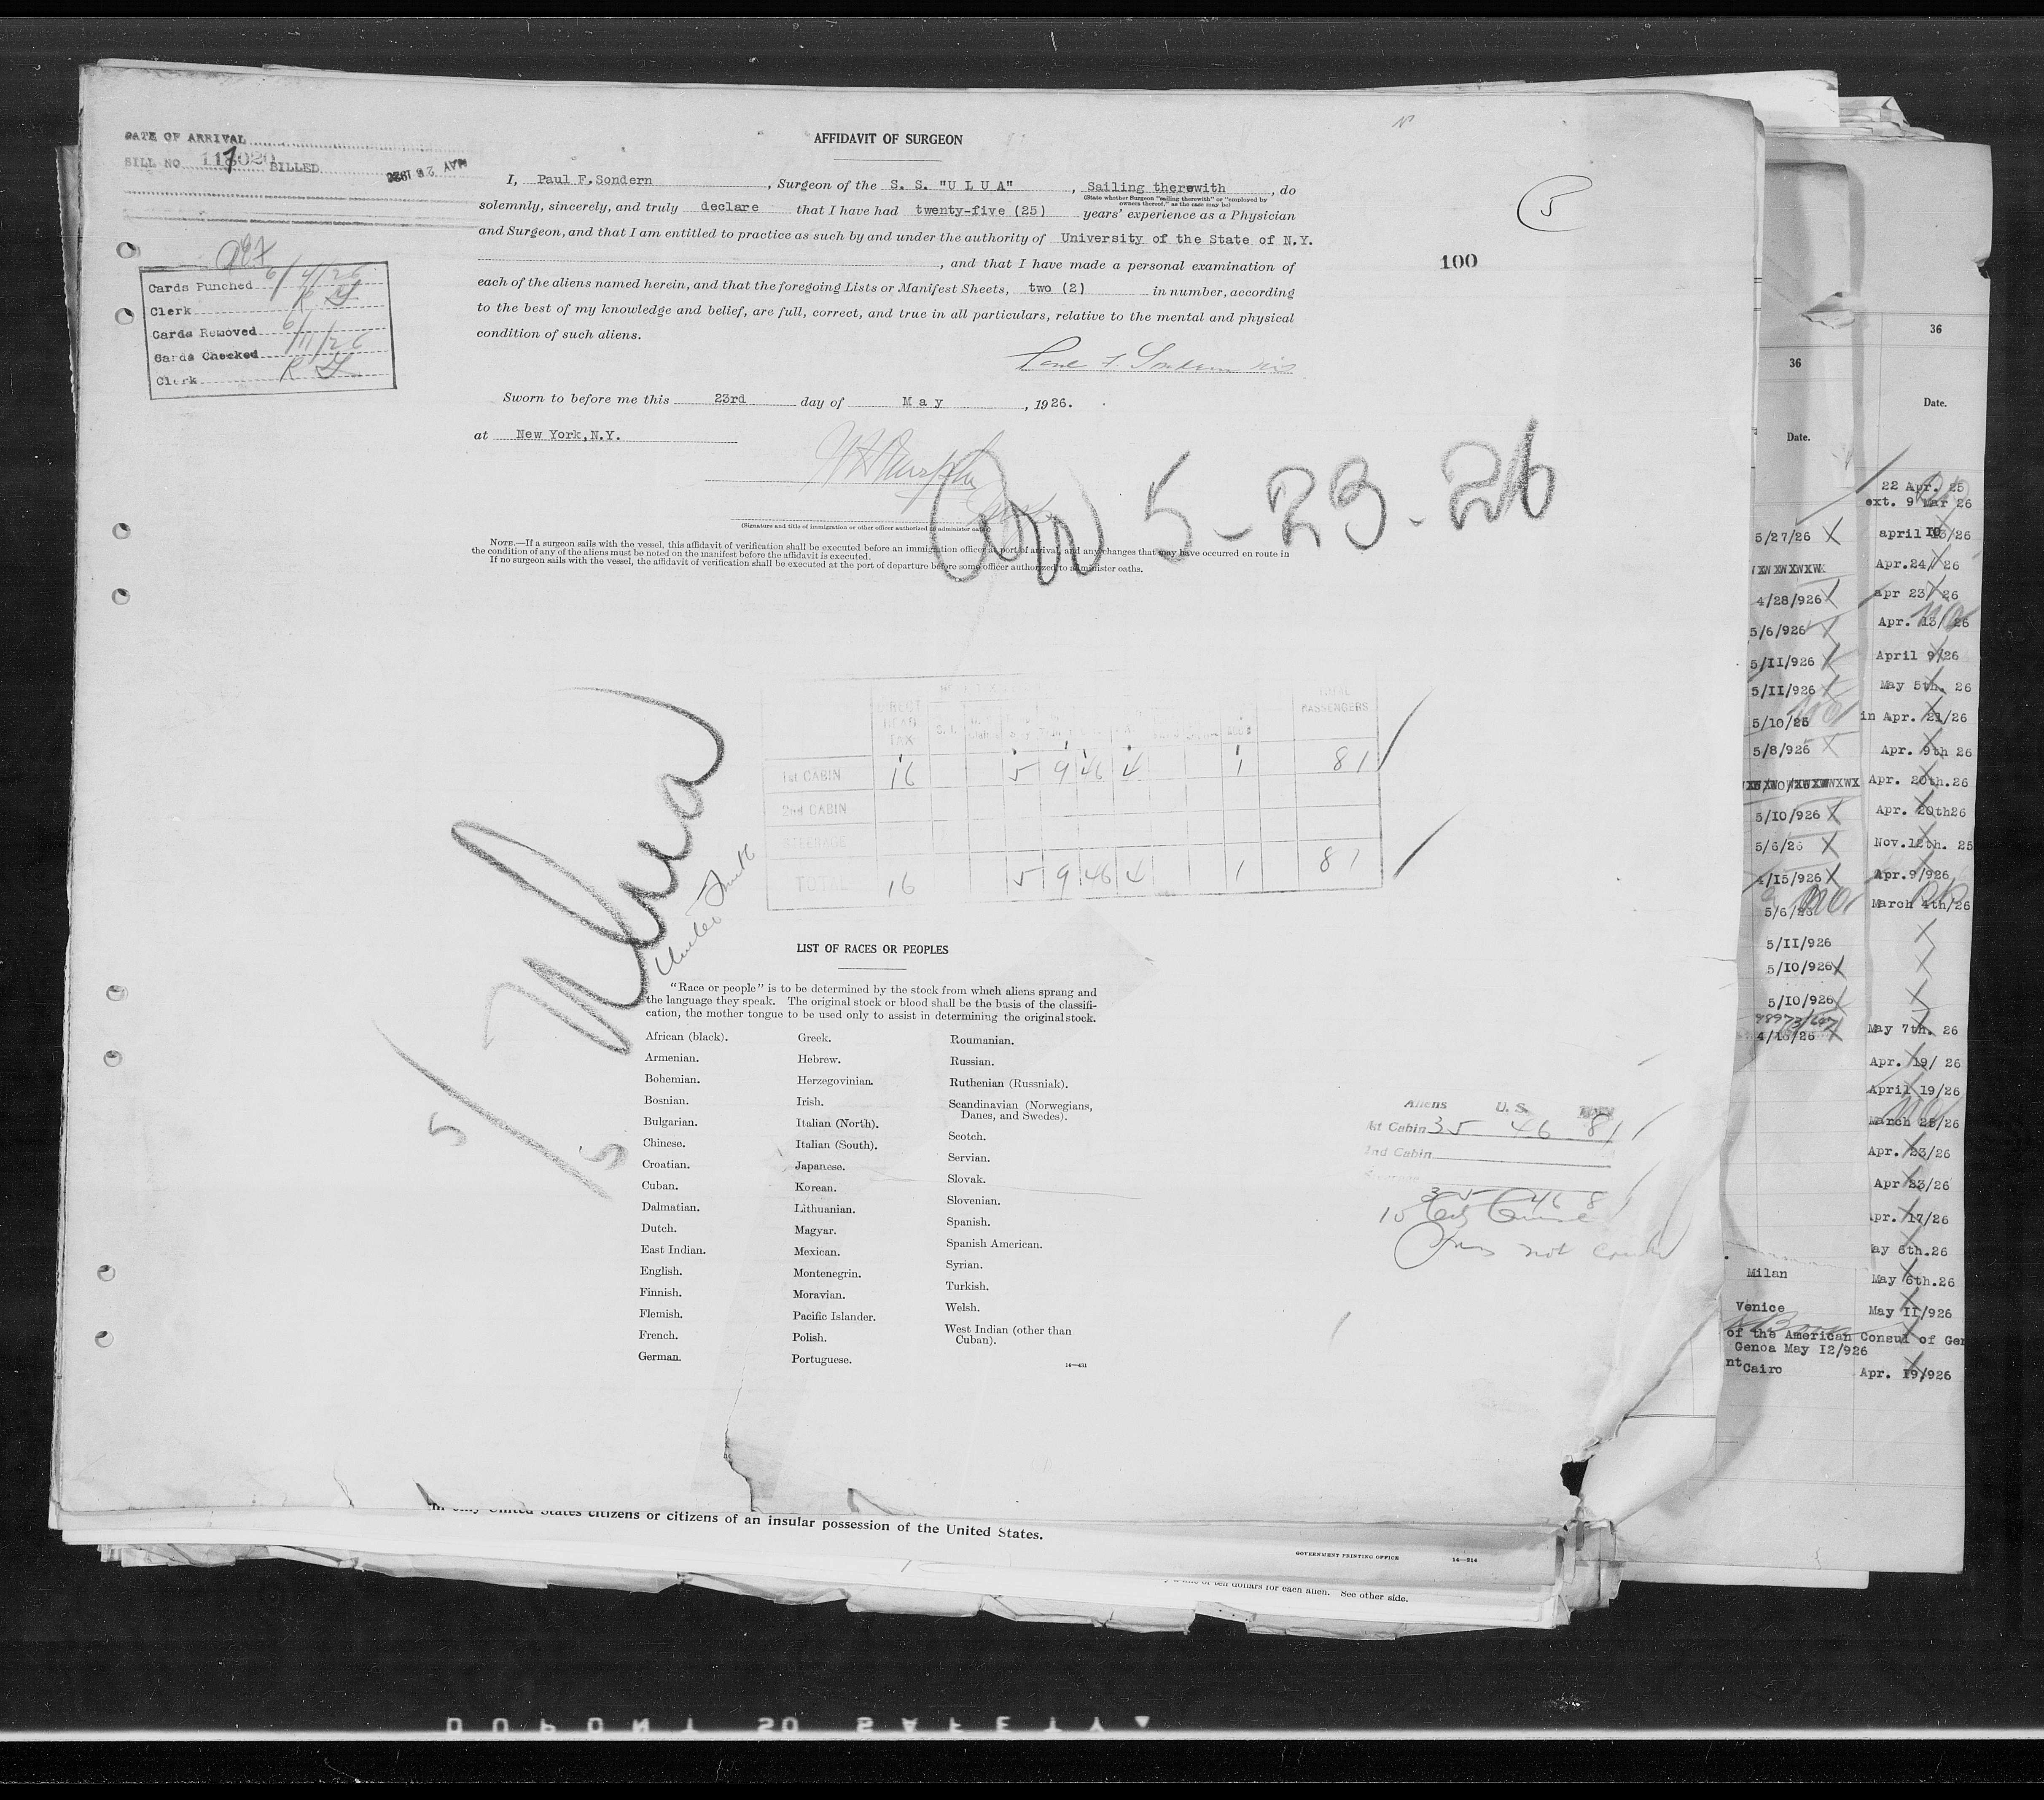 DATE OF ARRIVAL
BILL NO. BILLED MAY
Cards Punched 6/4/26
Clerk
Cards Removed
Cards Checked 6/11/26
Clerk
AFFIDAVIT OF SURGEON
I, Paul F.Sondern, Surgeon of the S. S. "U L U A", Sailing therewith, do
(State whether Surgeon "sailing therewith" or "employed by
owners thereof," as the case may be)
solemnly, sincerely, and truly declare that I have had twenty-five (25) years' experience as a Physician
and Surgeon, and that I am entitled to practice as such by and under the authority of University of the State of N.Y.
, and that I have made a personal examination of
each of the aliens named herein, and that the foregoing Lists or Manifest Sheets, two (2) in number, according
to the best of my knowledge and belief, are full, correct, and true in all particulars, relative to the mental and physical
condition of such aliens.
5
100
Sworn to before me this 23rd day of May, 1926.
at New York,N.Y.
5-23-26
(Signature and title of immigration or other officer authorized to administer oaths)
NOTE.—If a surgeon sails with the vessel, this affidavit of verification shall be executed before an immigration officer at port of arrival, and any changes that may have occurred en route in
the condition of any of the aliens must be noted on the manifest before the affidavit is executed.
If no surgeon sails with the vessel, the affidavit of verification shall be executed at the port of departure before some officer authorized to administer oaths.
Ulua
United Fruit
DIRECT HEAD TAX
TOTAL PASSENGERS
1st CABIN 16 5 9 46 4 1 81
2nd CABIN
STEERAGE
TOTAL 16 5 9 46 4 1 81
LIST OF RACES OR PEOPLES
"Race or people" is to be determined by the stock from which aliens sprang and
the language they speak. The original stock or blood shall be the basis of the classifi-
cation, the mother tongue to be used only to assist in determining the original stock.
African (black).
Armenian.
Bohemian.
Bosnian.
Bulgarian.
Chinese.
Croatian.
Cuban.
Dalmatian.
Dutch.
East Indian.
English.
Finnish.
Flemish.
French.
German.
Greek.
Hebrew.
Herzegovinian.
Irish.
Italian (North).
Italian (South).
Japanese.
Korean.
Lithuanian.
Magyar.
Mexican.
Montenegrin.
Moravian.
Pacific Islander.
Polish.
Portuguese.
Roumanian.
Russian.
Ruthenian (Russniak).
Scandinavian (Norwegians,
Danes, and Swedes).
Scotch.
Servian.
Slovak.
Slovenian.
Spanish.
Spanish American.
Syrian.
Turkish.
Welsh.
West Indian (other than
Cuban).
14—431
5
5
Aliens U. S.
1st Cabin 35 46 81
2nd Cabin
35 46 81
only United States citizens or citizens of an insular possession of the United States.
GOVERNMENT PRINTING OFFICE 14—214
of ten dollars for each alien. See other side.
36
Date.
5/27/26
4/28/926
5/6/926
5/11/926
5/11/926
5/10/26
5/8/926
5/10/926
5/6/26
4/15/926
5/6/26
5/11/926
5/10/926
5/10/926
4/16/26
Milan
Venice
of the American Consul of Gen
Genoa May 12/926
Cairo
36
Date.
22 Apr. 25
ext. 9 Mar 26
Apr.24/ 26
apr 23/ 26
Apr. 13/ 26
April 9/26
May 5th. 26
in Apr. 21/26
Apr. 9th 26
Apr. 20th.26
Apr. 20th26
Nov.12th. 25
Apr.9/926
March 4th/26
May 7th. 26
Apr. 19/ 26
April 19/26
March 25/26
Apr. 23/26
Apr 23/26
Apr. 17/26
May 6th.26
May 6th.26
May 11/926
Apr. 19/926
DUPONT SAFETY